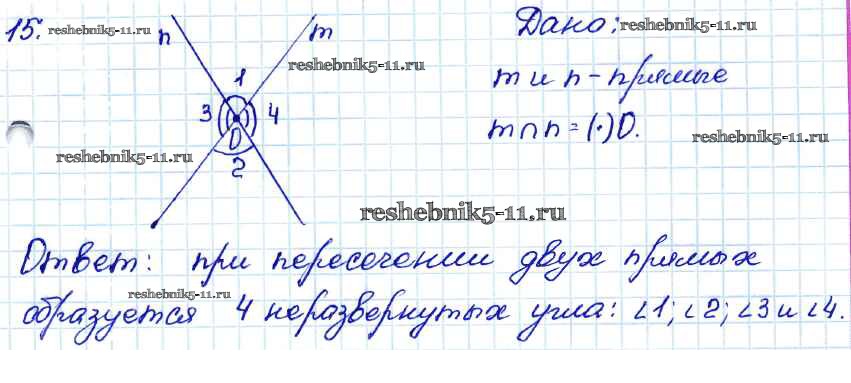 15. reshebnik5-11.ru n m Дано:
reshebnik5-11.ru
1 m и n - прямые
3 4
D m∩n = (·) D.
reshebnik5-11.ru 2 reshebnik5-11.ru
reshebnik5-11.ru
Ответ: при пересечении двух прямых
reshebnik5-11.ru
образуется 4 неразвернутых угла: ∠1; ∠2; ∠3 и ∠4.